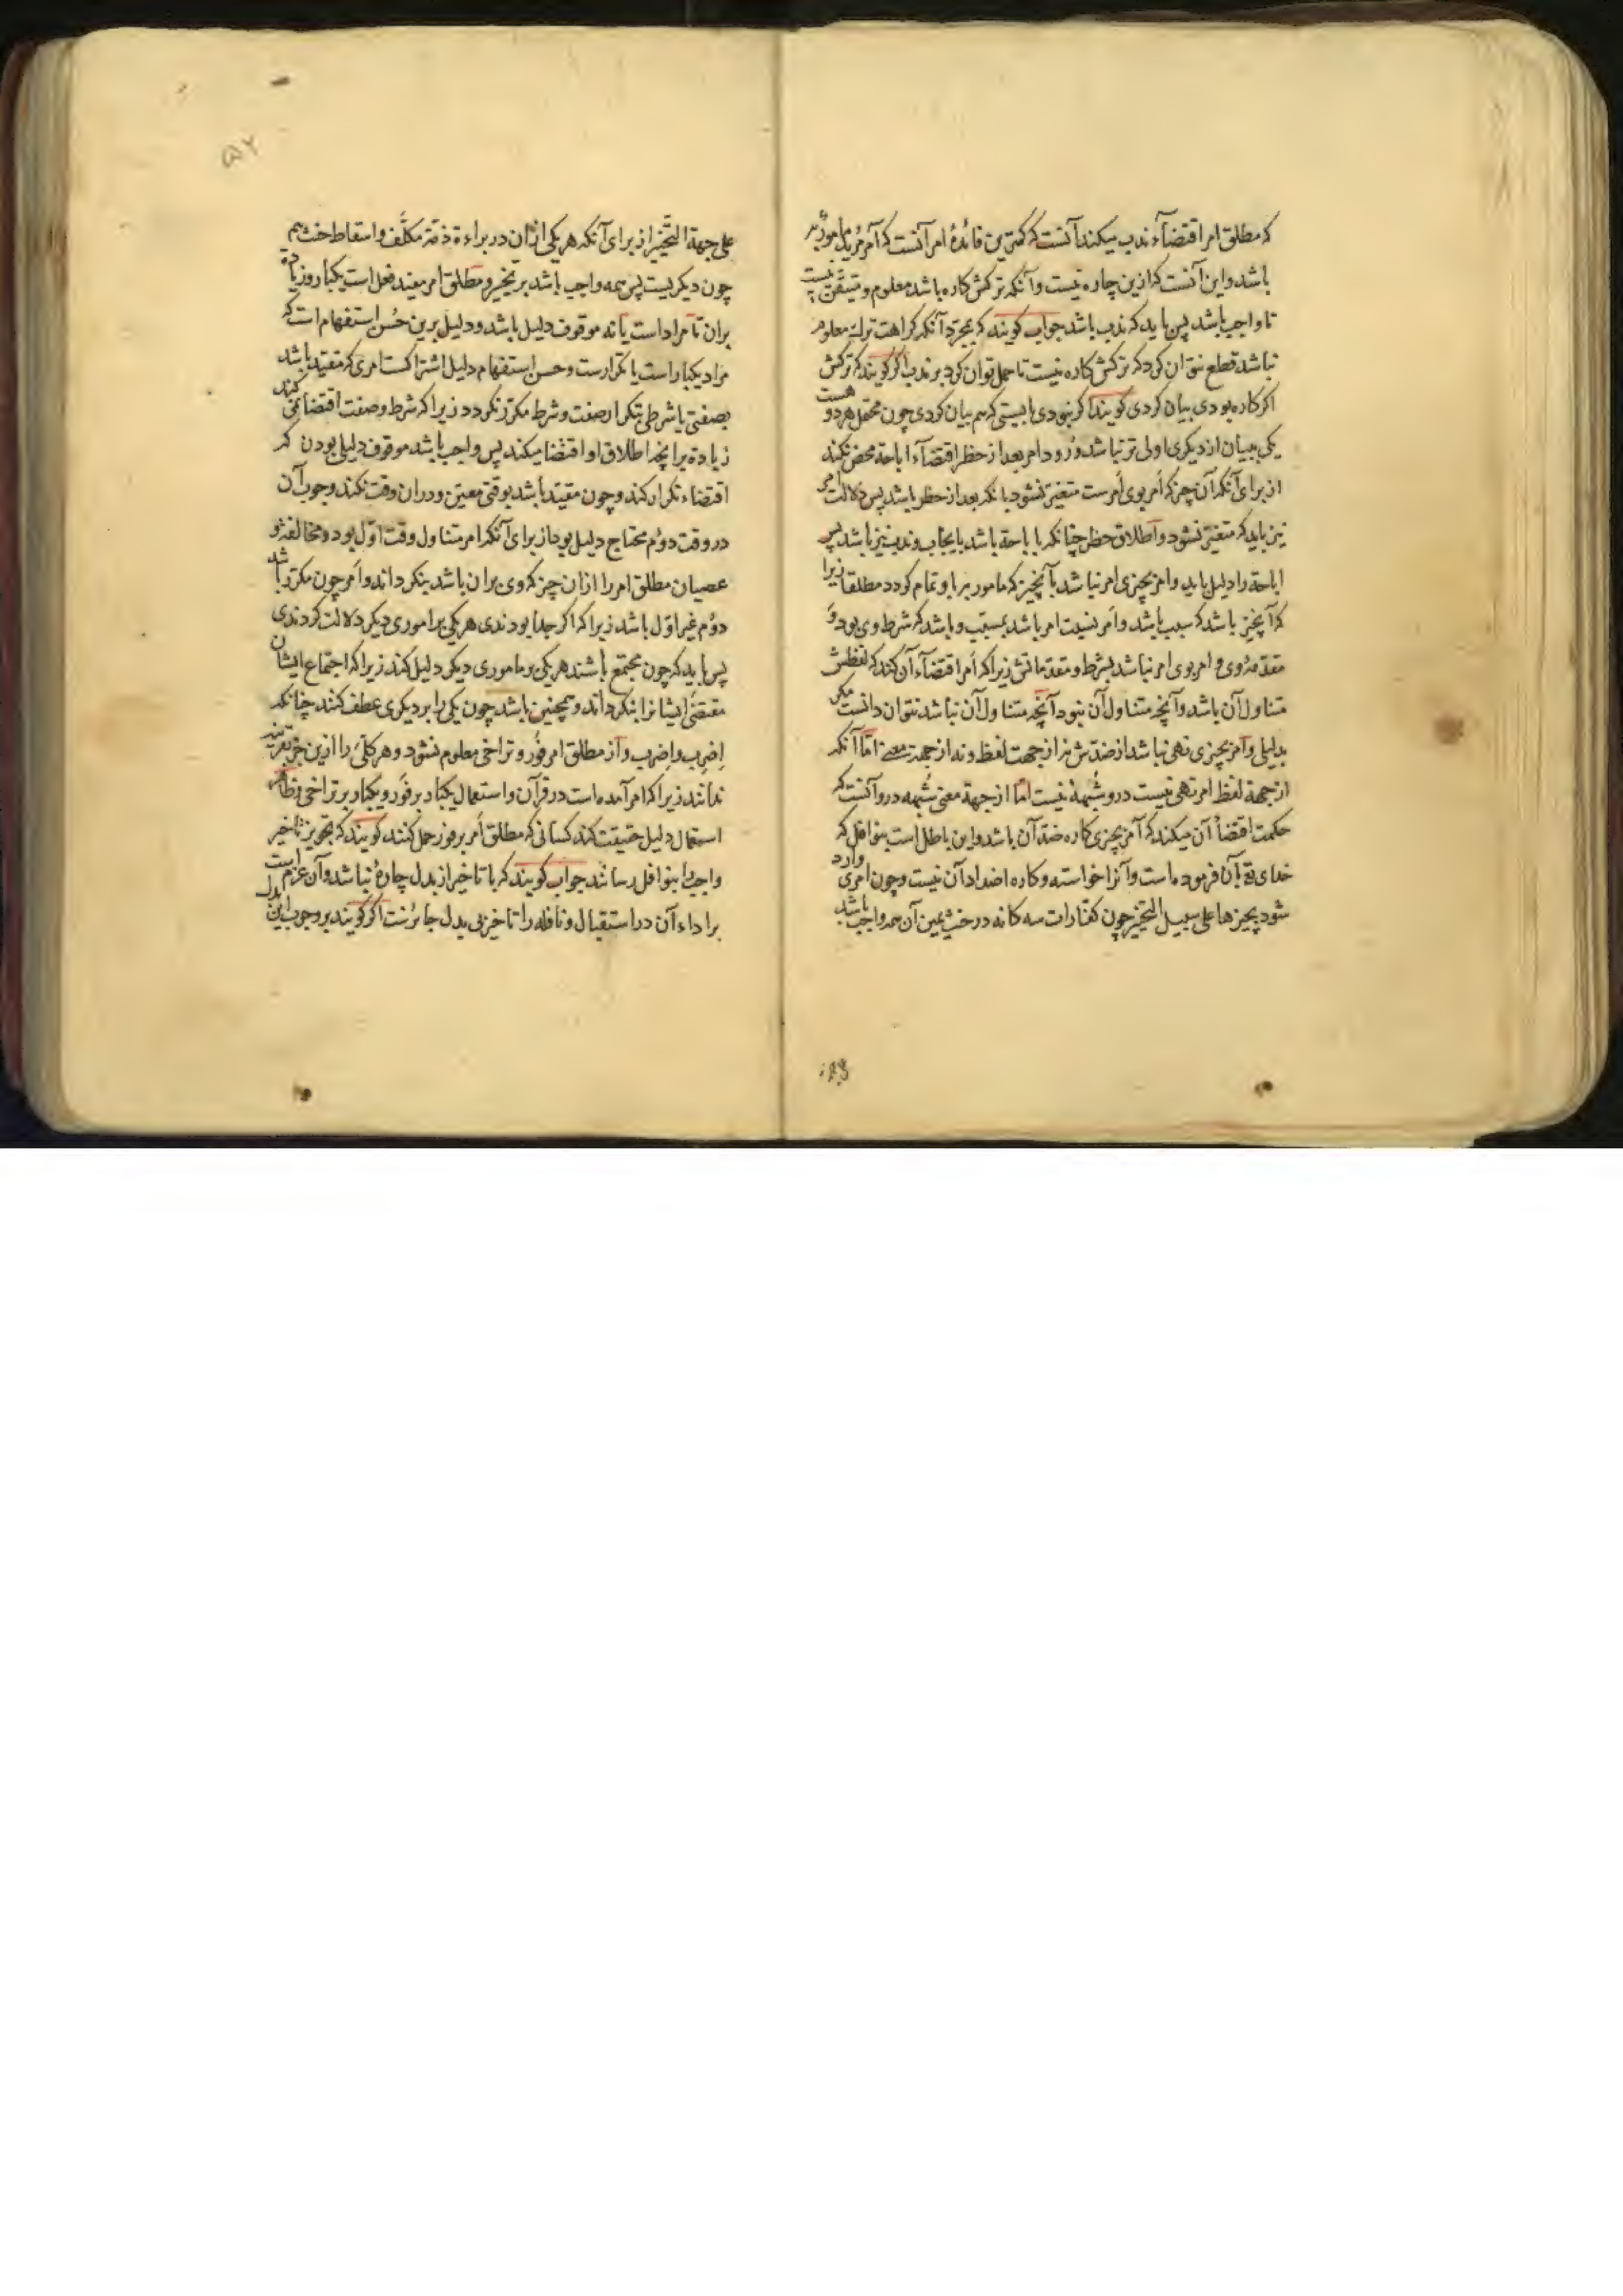 که مطلق امر اقتضآء ندب میکند آنست که کمترین فائدهٔ امر آنست که آمر مرید مامور به
باشد و این آنست که ازین چاره نیست و آنکه ترکش کاره باشد معلوم و متیقن نیست
تا واجب باشد پس باید که ندب باشد جواب گویند که بمجرد آنکه کراهت ترک معلوم
نباشد قطع نتوان کرد که ترکش کاره نیست تا حمل توان کرد بر ندب اگر گویند که ترکش
اگر کاره بودی بیان کردی گویند اگر نبودی بایستی که هم بیان کردی چون محتمل هر دو هست
یکی ببیان از دیگری اولی تر نباشد و ورود امر بعد از حظر اقتضآء اباحة محض نکند
از برای آنکه آن چیز که امر بوی امرست متغیّر نشود بانکه بعد از حظر باشد پس دلالت امر
نیز باید که متغیّر نشود و اطلاق حظر چنانکه باباحة باشد بایجاب و ندب نیز باشد پس
اباحة را دلیل باید و امر بچیزی امر نباشد بآنچیز که مامور به باو تمام گردد مطلقا زیرا
که آنچیز باشد که سبب باشد و امر بسبب امر باشد بمسبّب و باشد که شرط وی بود و
مقدمهٔ وی و امر بوی امر نباشد بشرط و مقدماتش زیرا که امر اقتضآء آن کند که لفظش
متناول آن باشد و آنچه متناول آن نبود آنچه متناول آن نباشد نتوان دانست مگر
بدلیلی و امر بچیزی نهی نباشد از ضدّش نه از جهت لفظ و نه از جهت معنی امّا آنکه
از جهة لفظ امر نهی نیست درو شبههٔ نیست امّا از جهة معنی شبهه درو آنست که
حکمت اقتضآ آن میکند که آمر بچیزی کاره ضدّ آن باشد و این باطل است بنوافل که
خدای تعٰ بآن فرموده است و آنرا خواسته و کاره اضداد آن نیست و چون امری وارد
شود بچیزها علی سبیل التخییر چون کفّارات سه گانه در حنث یمین آن همه واجب باشد
۵۲
علی جهة التخییر از برای آنکه هر یکی ازان در براءة ذمّة مکلّف و اسقاط حنث هم
چون دیگریست پس همه واجب باشد بر تخییر و مطلق امر مفید فعل است یکبار و زیادة
بران تا مراد است یا نه موقوف دلیل باشد و دلیل برین حُسن استفهام است که
مراد یکبار است یا تکرارست و حسن استفهام دلیل اشتراکست امری که مقیّد باشد
بصفتی یا شرطی بتکرار صفت و شرط مکرّر نگردد زیرا که شرط و صفت اقتضا نمی کند
زیادة بر آنچه اطلاق او اقتضا میکند پس واجب باشد موقوف دلیلی بودن که
اقتضاء تکرار کند و چون مقیّد باشد بوقتی معیّن و دران وقت نکند وجوب آن
در وقت دوم محتاج دلیل بود از برای آنکه امر متناول وقت اوّل بود و مخالفة و
عصیان مطلق امر را ازان چیز که وی بران باشد بنگرداند و امر چون مکرّر باشد
دوم غیر اوّل باشد زیرا که اگر جدا بودندی هر یکی بر اموری دیگر دلالت کردندی
پس باید که چون مجتمع باشند هر یکی بر ماموری دیگر دلیل کند زیرا که اجتماع ایشان
مقتضی ایشانرا بنگرداند و همچنین باشد چون یکی را بر دیگری عطف کنند چنانکه
اِضرب و اِضرب و از مطلق امر فور و تراخی معلوم نشود و هر یکی را ازین جز بقرینه
ندانند زیرا که امر آمده است در قرآن و استعمال یکبار بر فور و یکبار بر تراخی و ظاهر
استعمال دلیل حقیقت کند کسانی که مطلق امر بر فور حمل کنند گویند که تجویز تاخیر
واجب را بنوافل رساند جواب گویند که با تاخیر از بدل چارهٔ نباشد و آن عزم است
بر اداء آن در استقبال و نافله را تاخیر بی بدل جائزست اگر گویند بر وجوب این بدل